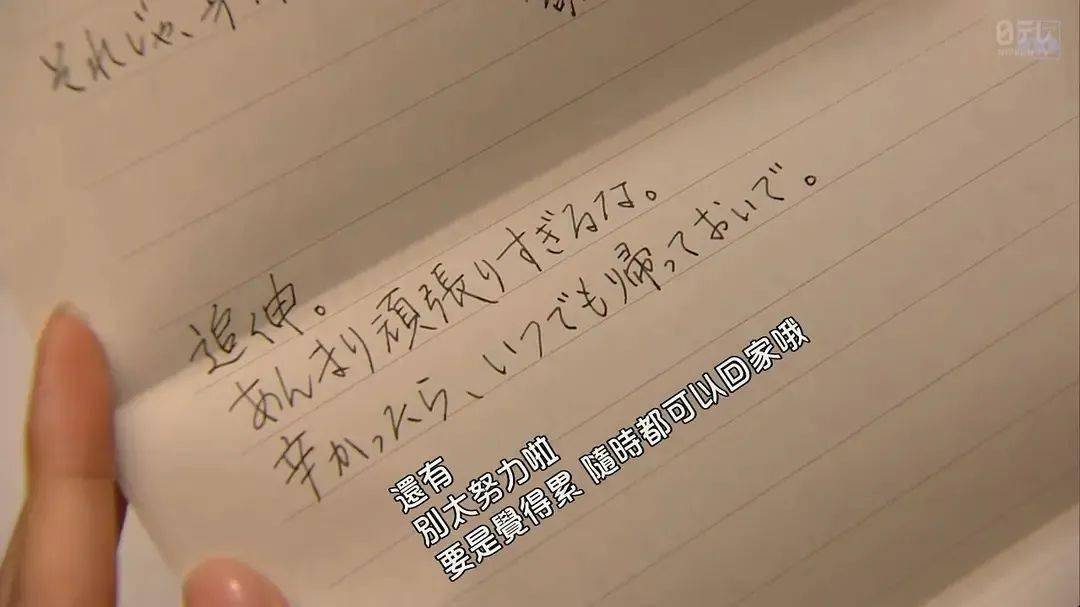 それじゃ、
日テレ
追伸。
あんまり頑張りすぎるな。
辛かったら、いつでも帰っておいで。
還有
別太努力啦
要是覺得累 隨時都可以回家哦